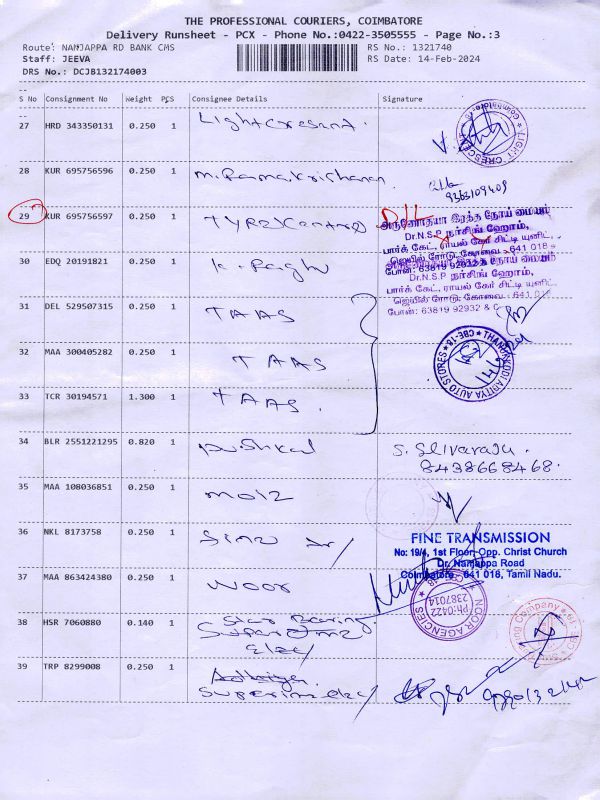 THE PROFESSIONAL COURIERS, COIMBATORE
Delivery Runsheet - PCX - Phone No.:0422-3505555 - Page No.:3
Route: NANJAPPA RD BANK CMS RS No.: 1321740
Staff: JEEVA RS Date: 14-Feb-2024
DRS No.: DCJB132174003
S No Consignment No Weight PCS Consignee Details Signature
27 HRD 343350131 0.250 1 Light Cresent.
LIGHT CRESCENT
28 KUR 695756596 0.250 1 m. Ramakrishanan
9363109409
29 KUR 695756597 0.250 1 TYRZ Centre D/L
அருணோதயா இரத்த நோய் மையம்
Dr.N.S.P நர்சிங் ஹோம்,
பார்க் கேட், ராயல் கேர் சிட்டி யுனிட்,
ஜெயில் ரோடு, கோவை - 641 018
போன்: 63819 92932
30 EDQ 20191821 0.250 1 K. Raghu
Dr.N.S.P நர்சிங் ஹோம்,
பார்க் கேட், ராயல் கேர் சிட்டி யுனிட்,
ஜெயில் ரோடு, கோவை - 641 018
போன்: 63819 92932 &
31 DEL 529507315 0.250 1 TAAS
32 MAA 300405282 0.250 1 TAAS
ADITYA AUTO STORES ★ CBE-18 ★
33 TCR 30194571 1.300 1 TAAS.
34 BLR 2551221295 0.820 1 Pushkal S. Sivaraju.
8438668468.
35 MAA 108036851 0.250 1 moiz
36 NKL 8173758 0.250 1
FINE TRANSMISSION
No: 19/4, 1st Floor, Opp. Christ Church
Dr. Nanjappa Road
Coimbatore - 641 018, Tamil Nadu.
37 MAA 863424380 0.250 1 Noor
NOOR AGENCIES
Ph:0422
2387014
38 HSR 7060880 0.140 1 Star Bearing
Supreme
Elec/
39 TRP 8299008 0.250 1
Supreme elec/